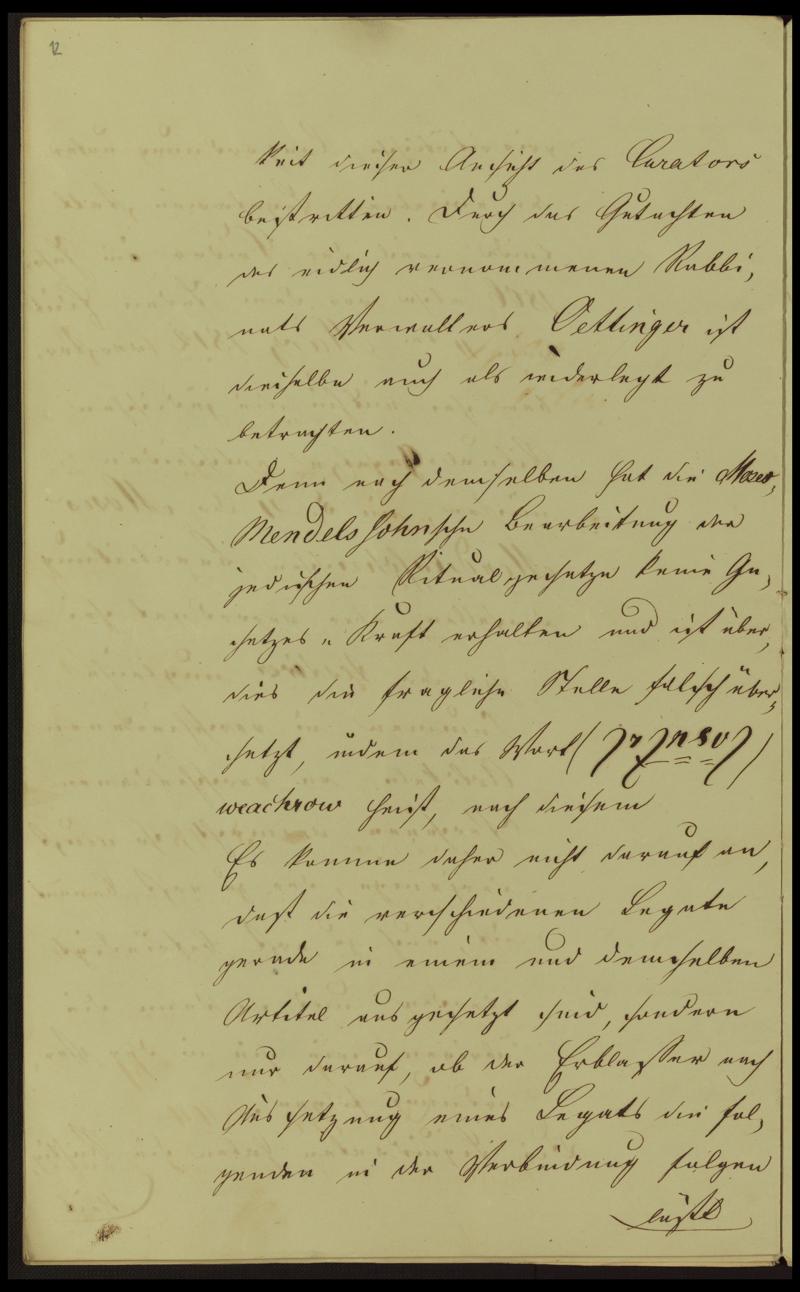 12
keit dieser Ansicht des Curators
bestritten. Durch das Gutachten
des eidlich vernommenen Rabbi,
nats Verwalters Oettinger ist
dieselbe auch als widerlegt zu
betrachten.
Denn nach demselben hat die Moses,
Mendelssohnsche Bearbeitung der
jüdischen Ritualgesetze keine Ge,
setzes = Kraft erhalten und ist über,
dies die fragliche Stelle falsch über,
setzt, indem das Wort (
weachrow heißt, nach diesem
Es komme daher nicht darauf an,
daß die verschiedenen Legate
gerade in einem und demselben
Artikel ausgesetzt sind, sondern
nur darauf, ob der Erblasser nach
Aussetzung eines Legats die fol,
genden in der Verbindung folgen
läßt